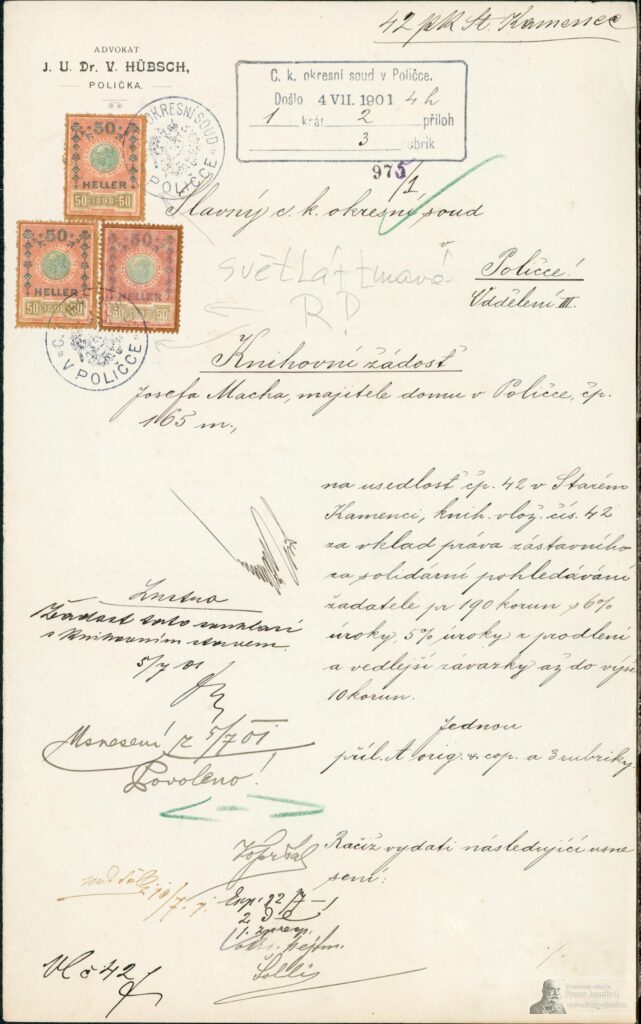 42 pk St. Kamenec
ADVOKAT
J. U. Dr. V. HÜBSCH,
POLIČKA.
C. k. okresní soud v Poličce.
Došlo 4 VII. 1901 4 h
1 krát 2 příloh
3 rubrik
975/1
OKRESNÍ SOUD
POLIČCE
50
HELLER
50 1898 50
50
HELLER
50 1898 50
50
HELLER
50 1898 50
V POLIČCE
Slavný c. k. okresní soud
v
Poličce!
Oddělení III.
světlá + tmavá
R.P.
Knihovní žádost
Josefa Macha, majitele domu v Poličce, čp.
165 m.,
na usedlosť čp. 42 v Starém
Kamenci, knih. vlož. čís. 42
za vklad práva zástavního
za solidární pohledávání
žadatele pr 190 korun s 6%
úroky, 5% úroky z prodlení
a vedlejší závazky až do výše
10 korun.
Jednou
příl. A orig. & cop. a 3 rubriky
Lustra
Žádost tato souhlasí
s knihovním stavem.
5/7 01
Usnesení z 5/7 01
Povoleno!
Račiž vydati následující usne
sení:
Exp. 22/7
Vl č 42
Franz Josefa I.